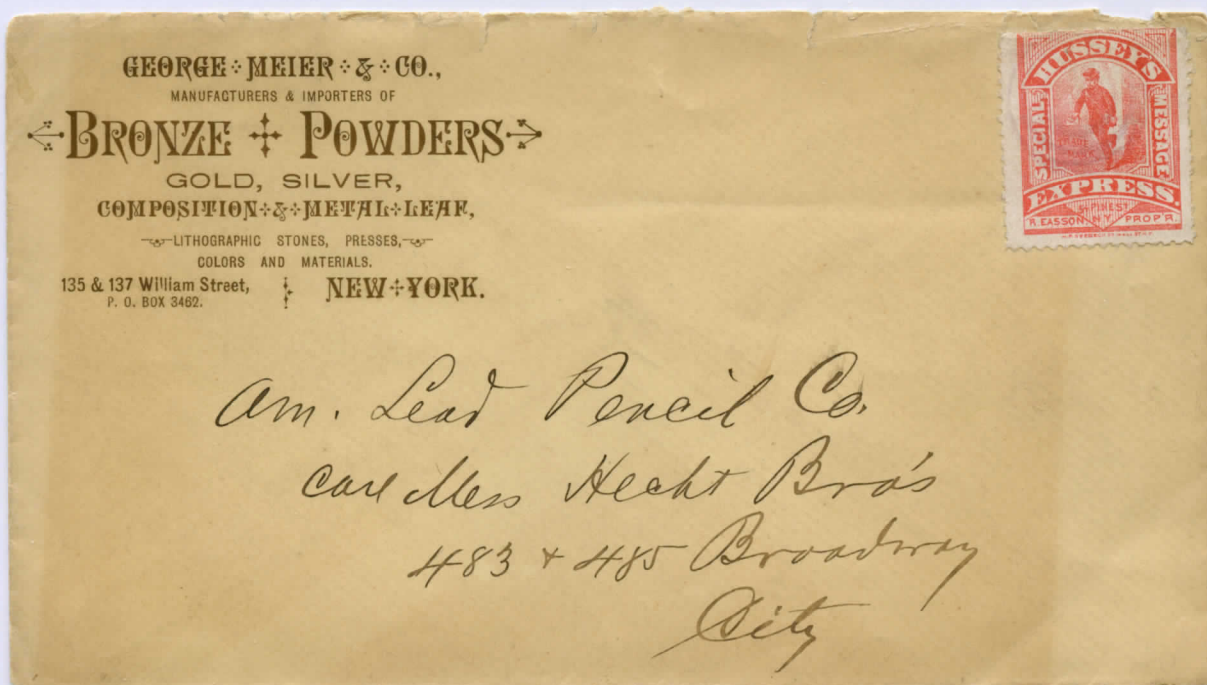 GEORGE MEIER & CO.,
MANUFACTURERS & IMPORTERS OF
BRONZE POWDERS
GOLD, SILVER,
COMPOSITION & METAL LEAF,
LITHOGRAPHIC STONES, PRESSES,
COLORS AND MATERIALS.
135 & 137 William Street,
P. O. BOX 3462.
NEW YORK.
HUSSEY'S
SPECIAL
MESSAGE
TRADE
MARK
EXPRESS.
PINE ST
R. EASSON, N.Y. PROP'R.
Am. Lead Pencil Co.
care Mess Hecht Bro's
483 + 485 Broadway
City